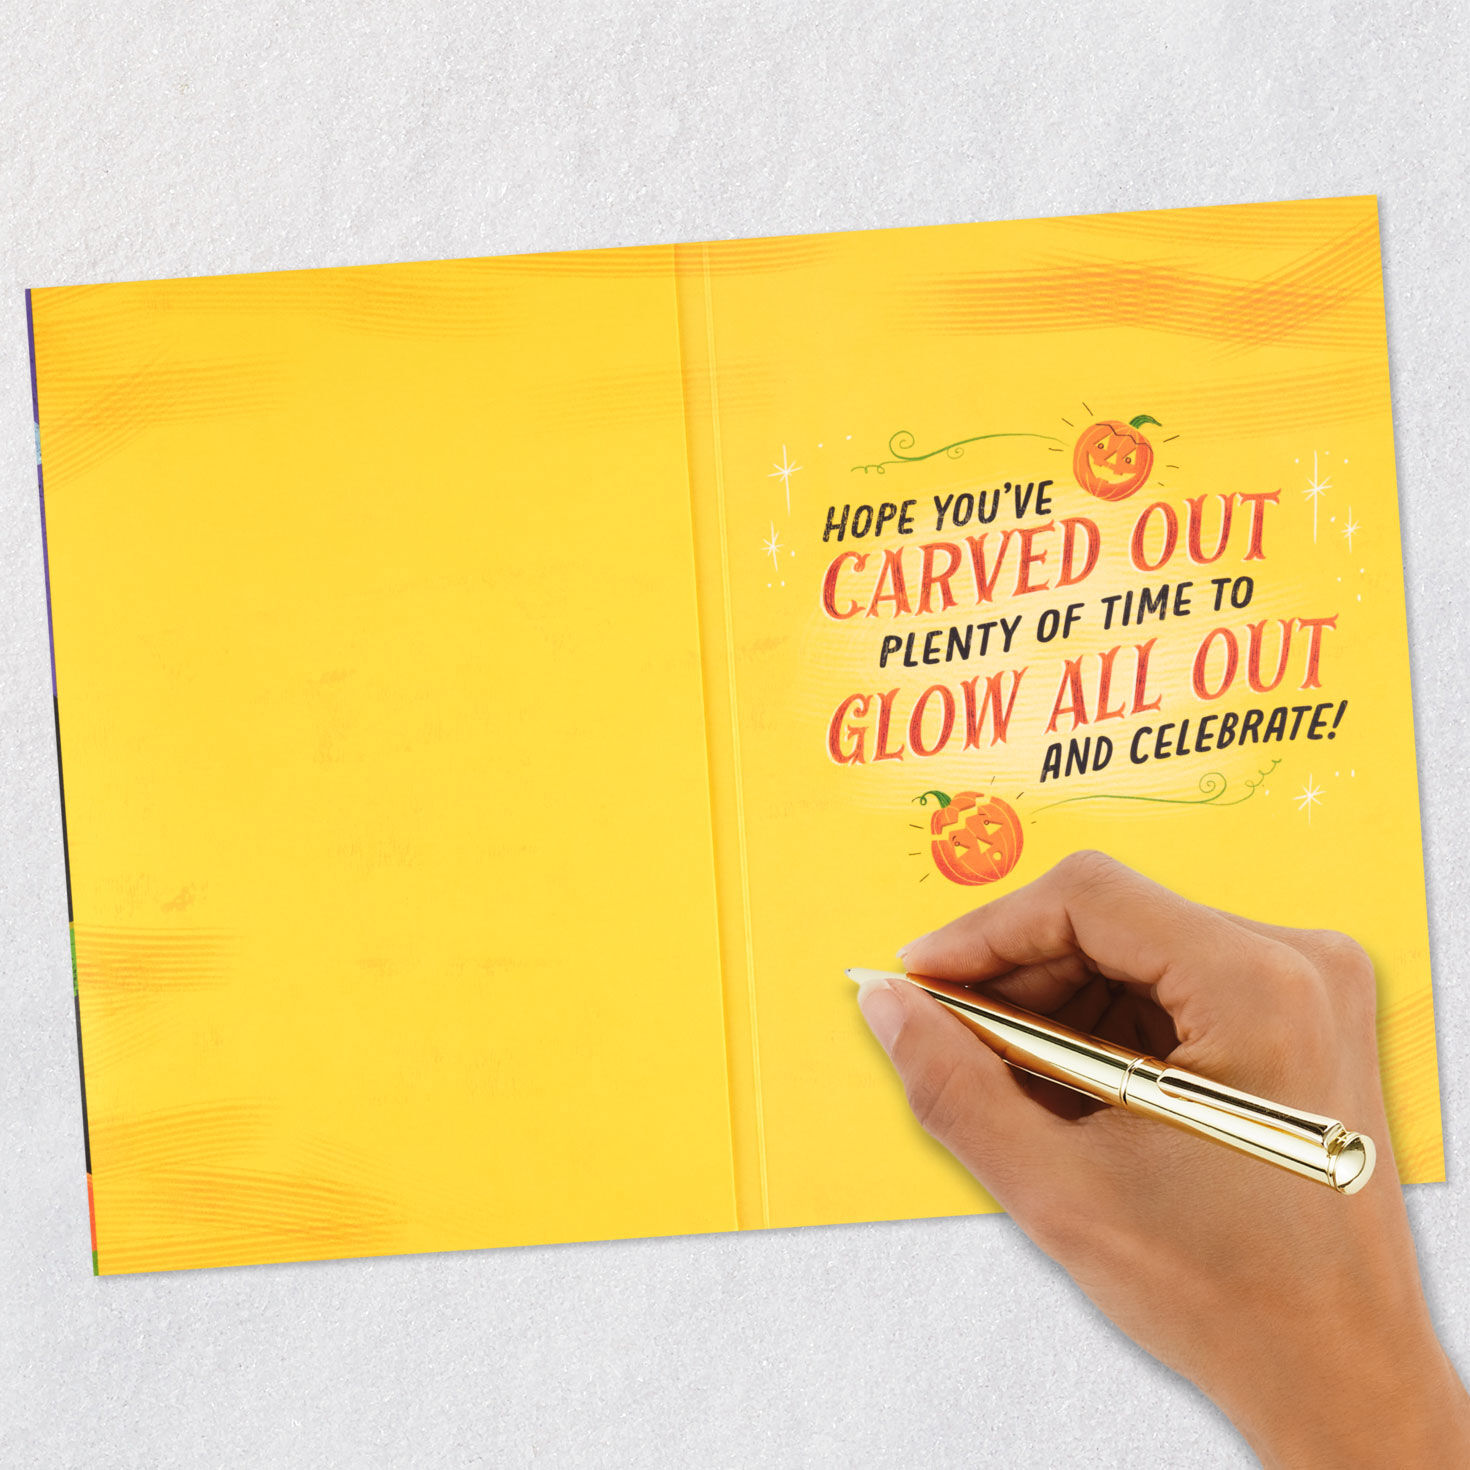 HOPE YOU'VE
CARVED OUT
PLENTY OF TIME TO
GLOW ALL OUT
AND CELEBRATE!